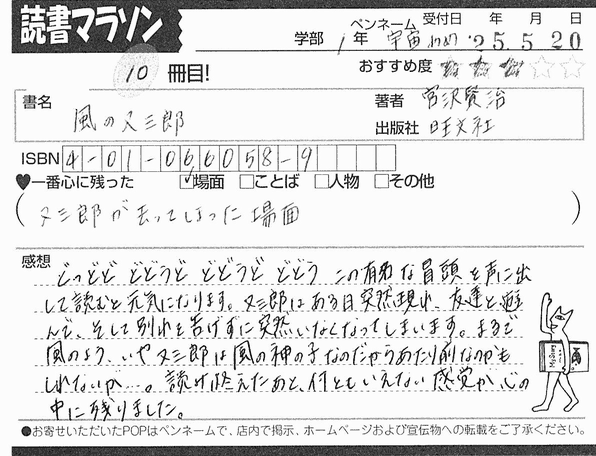 読書マラソン
学部 1年 ペンネーム 宇宙 受付日 '25年 5月 20日
10 冊目! おすすめ度 ★★★☆☆
書名 風の又三郎
著者 宮沢賢治
出版社 旺文社
ISBN 4-01-066058-9
♥一番心に残った ☑場面 □ことば □人物 □その他
(又三郎が去ってしまった場面)
感想 どっどど どどうど どどうど どどう この有名な冒頭を声に出
して読むと元気になります。又三郎はある日突然現れ、友達と遊
んで、そして別れを告げずに突然いなくなってしまいます。まるで
風のよう、いや又三郎は風の神の子なのだからあたり前なのかも
しれないが…。読み終えたあと、何ともいえない感覚が、心の
中に残りました。
●お寄せいただいたPOPはペンネームで、店内で掲示、ホームページおよび宣伝物への転載をご了承ください。